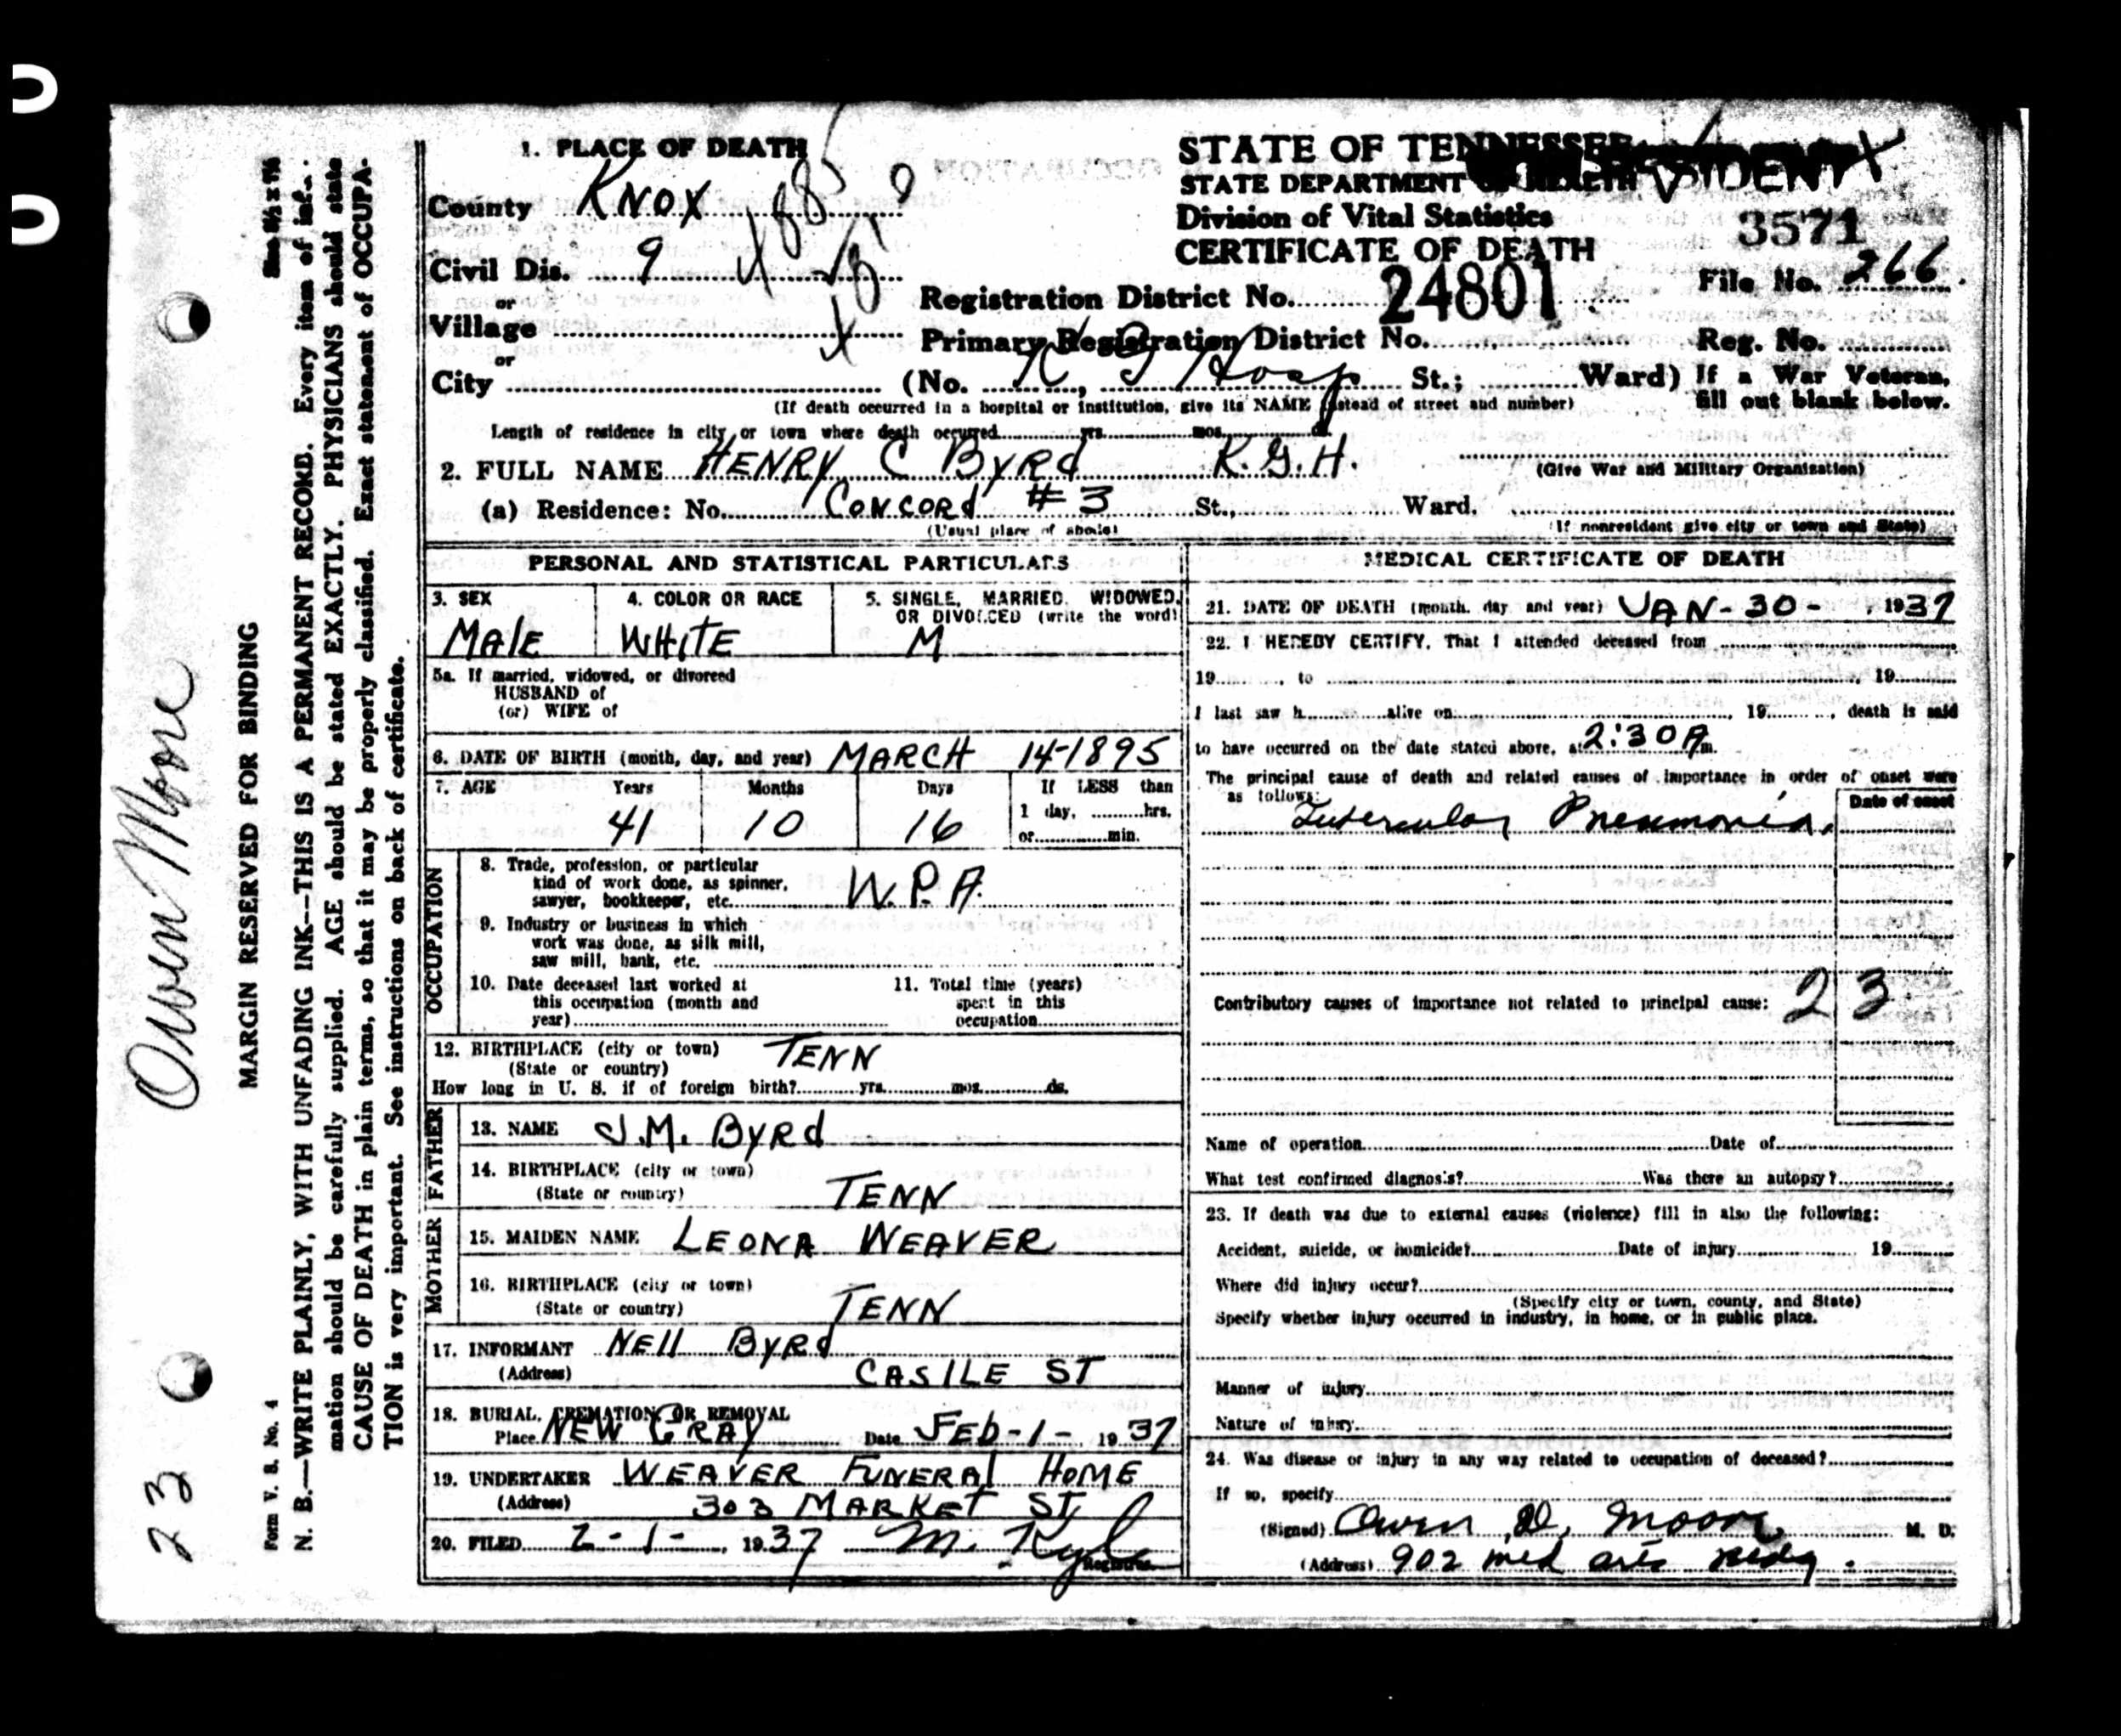 1. PLACE OF DEATH
County KNOX
Civil Dis. 9
or
Village
or
City (No. K G Hosp St.; Ward)
(If death occurred in a hospital or institution, give its NAME instead of street and number)
STATE OF TENNESSEE
STATE DEPARTMENT OF HEALTH
Division of Vital Statistics
CERTIFICATE OF DEATH
3571
File No. 266
Registration District No. 24801
Primary Registration District No.
Reg. No.
If a War Veteran,
fill out blank below.
Length of residence in city or town where death occurred yrs. mos. ds.
2. FULL NAME HENRY C BYRd K.G.H.
(Give War and Military Organization)
(a) Residence: No. CONCORd #3 St., Ward.
(Usual place of abode)
(If nonresident give city or town and State)
PERSONAL AND STATISTICAL PARTICULARS
3. SEX
MAlE
4. COLOR OR RACE
WHITE
5. SINGLE, MARRIED, WIDOWED,
OR DIVORCED (write the word)
M
5a. If married, widowed, or divorced
HUSBAND of
(or) WIFE of
6. DATE OF BIRTH (month, day, and year) MARCH 14-1895
7. AGE Years Months Days If LESS than
1 day, hrs.
or min.
41 10 16
OCCUPATION
8. Trade, profession, or particular
kind of work done, as spinner,
sawyer, bookkeeper, etc. W.P.A.
9. Industry or business in which
work was done, as silk mill,
saw mill, bank, etc.
10. Date deceased last worked at
this occupation (month and
year)
11. Total time (years)
spent in this
occupation
12. BIRTHPLACE (city or town) TENN
(State or country)
How long in U. S. if of foreign birth? yrs. mos. ds.
FATHER
13. NAME J.M. BYRd
14. BIRTHPLACE (city or town)
(State or country) TENN
MOTHER
15. MAIDEN NAME LEONA WEAVER
16. BIRTHPLACE (city or town)
(State or country) TENN
17. INFORMANT NEll BYRd
(Address) CASILE ST
18. BURIAL, CREMATION OR REMOVAL
Place NEW GRAY Date FEb-1- 1937
19. UNDERTAKER WEAVER FUNERAl HOME
(Address) 303 MARKET ST
20. FILED 2-1-, 1937 M. Kyle
Registrar
MEDICAL CERTIFICATE OF DEATH
21. DATE OF DEATH (month, day and year) JAN-30-, 1937
22. I HEREBY CERTIFY, That I attended deceased from
19 , to , 19
I last saw h alive on , 19 , death is said
to have occurred on the date stated above, at 2:30 A m.
The principal cause of death and related causes of importance in order of onset were
as follows:
Date of onset
Tubercular Pneumonia.
Contributory causes of importance not related to principal cause: 23
Name of operation Date of
What test confirmed diagnosis? Was there an autopsy?
23. If death was due to external causes (violence) fill in also the following:
Accident, suicide, or homicide? Date of injury 19
Where did injury occur?
(Specify city or town, county, and State)
Specify whether injury occurred in industry, in home, or in public place.
Manner of injury
Nature of injury
24. Was disease or injury in any way related to occupation of deceased?
If so, specify
(Signed) Owen D. Moore M. D.
(Address) 902 med arts Bldg.
Owen Moore
23
MARGIN RESERVED FOR BINDING
Form V. S. No. 4
N. B.—WRITE PLAINLY, WITH UNFADING INK—THIS IS A PERMANENT RECORD. Every item of infor-
mation should be carefully supplied. AGE should be stated EXACTLY. PHYSICIANS should state
CAUSE OF DEATH in plain terms, so that it may be properly classified. Exact statement of OCCUPA-
TION is very important. See instructions on back of certificate.